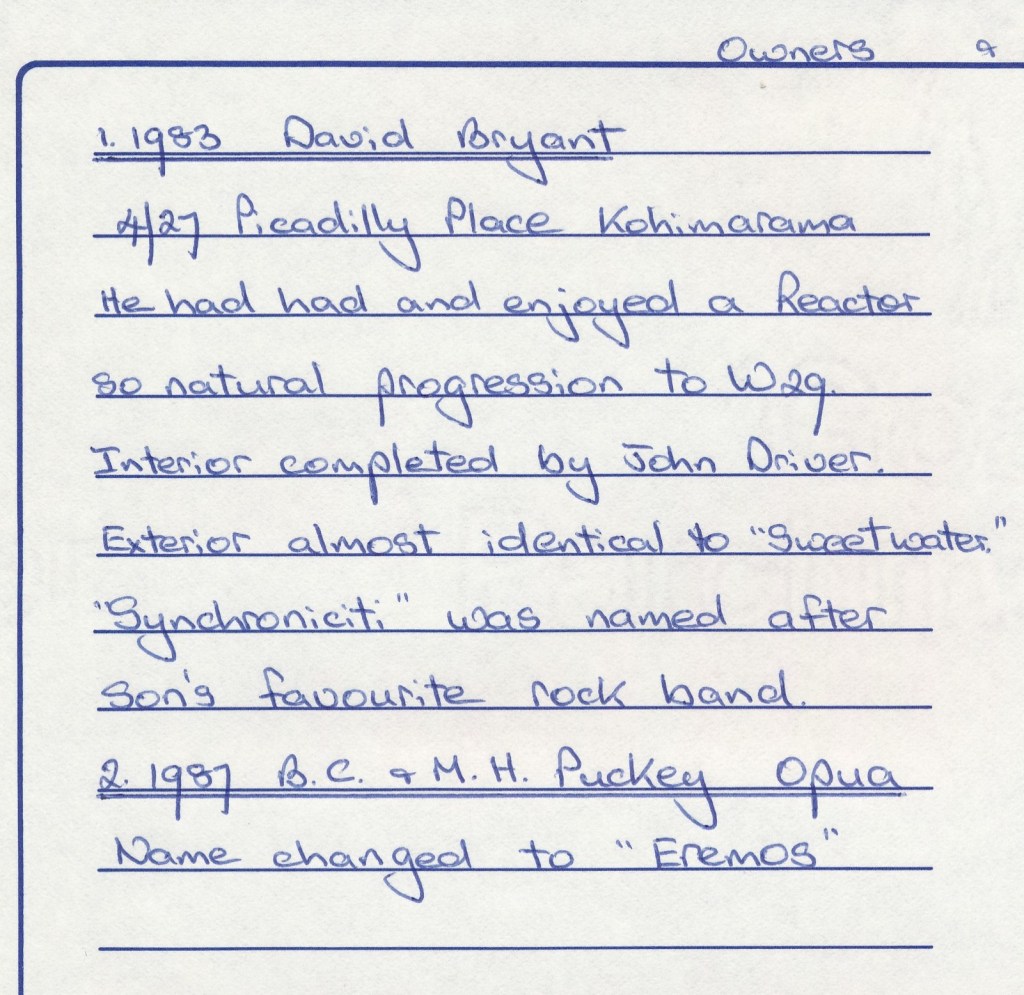 Owners &
1. 1983 David Bryant
4/27 Picadilly Place Kohimarama
He had had and enjoyed a Reactor
so natural progression to W29.
Interior completed by John Driver.
Exterior almost identical to "Sweetwater."
"Synchroniciti" was named after
son's favourite rock band.
2. 1987 B.C. & M.H. Puckey Opua
Name changed to "Eremos"